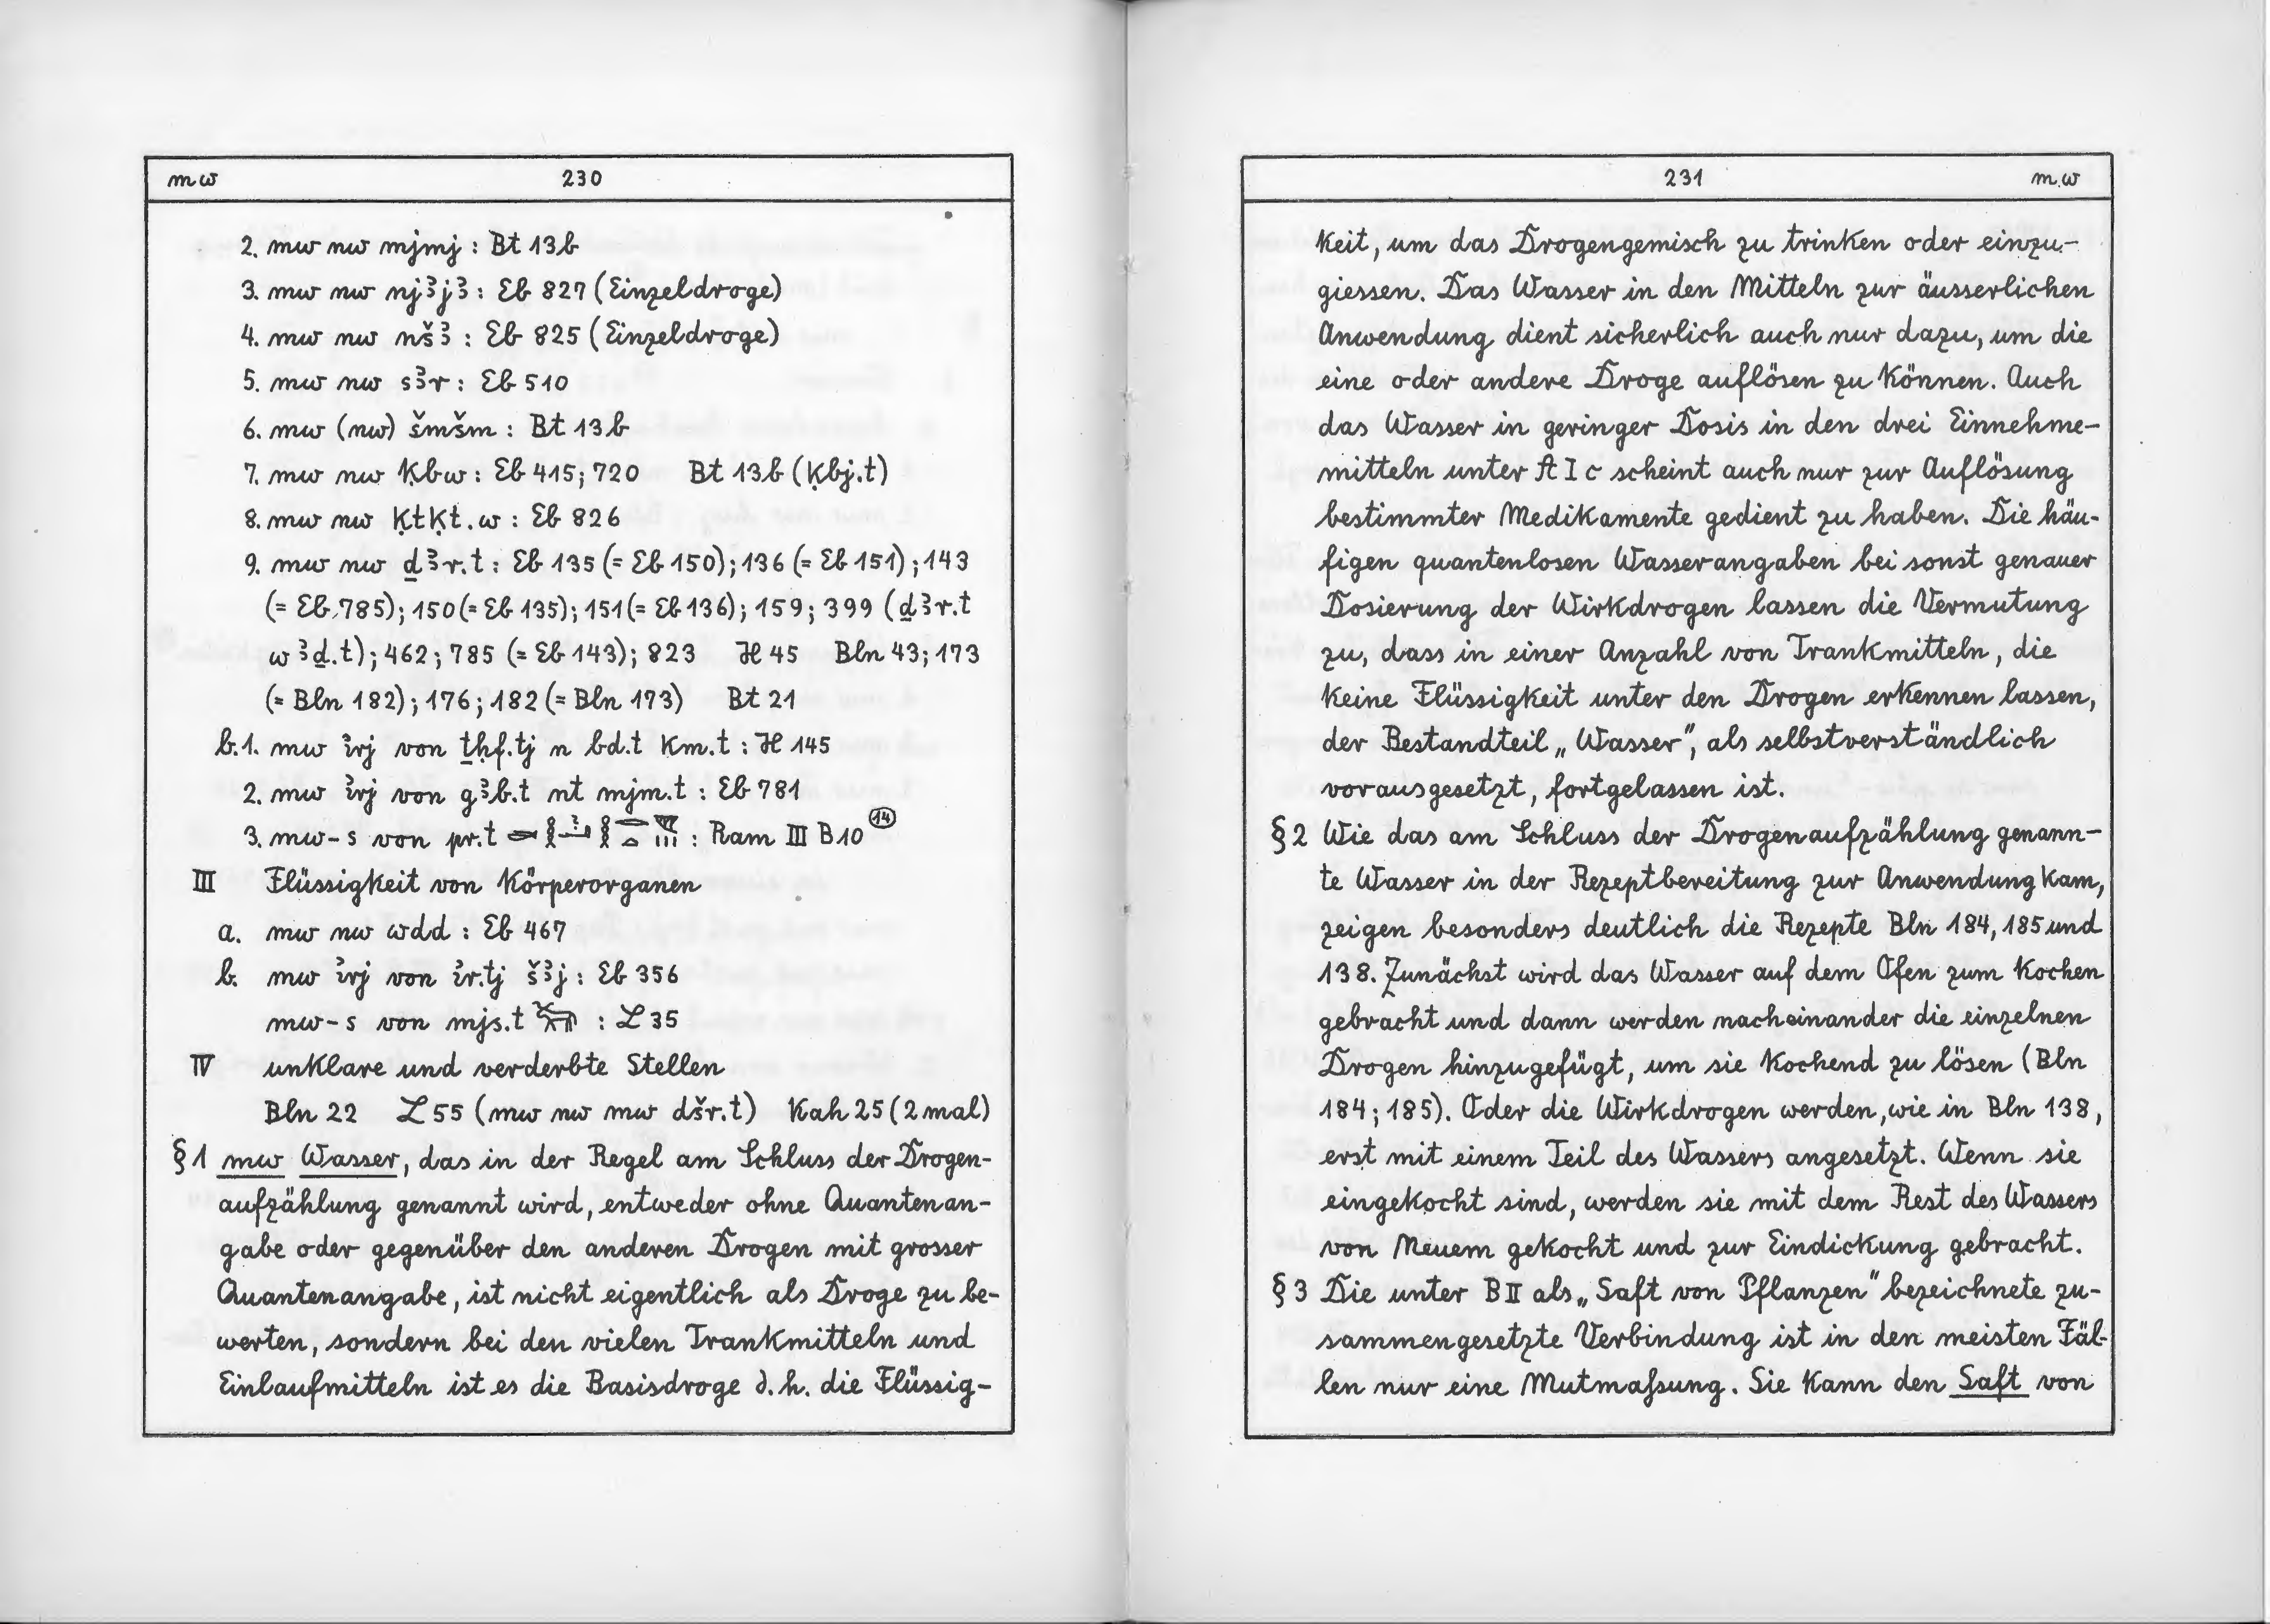 mw 230
2. mw nw mjmj : Bt 13b
3. mw nw njꜣjꜣ : Eb 827 (Einzeldroge)
4. mw nw nšꜣ : Eb 825 (Einzeldroge)
5. mw nw sꜣr : Eb 510
6. mw (nw) šmšm : Bt 13b
7. mw nw ḳbw : Eb 415; 720 Bt 13b (ḳbj.t)
8. mw nw ḳtḳt.w : Eb 826
9. mw nw ḏꜣr.t : Eb 135 (= Eb 150); 136 (= Eb 151); 143
(= Eb 785); 150 (= Eb 135); 151 (= Eb 136); 159; 399 (ḏꜣr.t
wꜣḏ.t); 462; 785 (= Eb 143); 823 H 45 Bln 43; 173
(= Bln 182); 176; 182 (= Bln 173) Bt 21
b.1. mw ꞽrj von ṯḥf.tj n bd.t km.t : H 145
2. mw ꞽrj von gꜣb.t nt mjm.t : Eb 781
3. mw-s von pr.t : Ram III B10 ⑭
III Flüssigkeit von Körperorganen
a. mw nw wdd : Eb 467
b. mw ꞽrj von ꞽr.tj šꜣj : Eb 356
mw-s von mjs.t : L 35
IV unklare und verderbte Stellen
Bln 22 L 55 (mw nw mw dšr.t) Kah 25 (2 mal)
§ 1 mw Wasser, das in der Regel am Schluss der Drogen-
aufzählung genannt wird, entweder ohne Quantenan-
gabe oder gegenüber den anderen Drogen mit grosser
Quantenangabe, ist nicht eigentlich als Droge zu be-
werten, sondern bei den vielen Trankmitteln und
Einlaufmitteln ist es die Basisdroge d.h. die Flüssig-
231 mw
keit, um das Drogengemisch zu trinken oder einzu-
giessen. Das Wasser in den Mitteln zur äusserlichen
Anwendung dient sicherlich auch nur dazu, um die
eine oder andere Droge auflösen zu können. Auch
das Wasser in geringer Dosis in den drei Einnehme-
mitteln unter A I c scheint auch nur zur Auflösung
bestimmter Medikamente gedient zu haben. Die häu-
figen quantenlosen Wasserangaben bei sonst genauer
Dosierung der Wirkdrogen lassen die Vermutung
zu, dass in einer Anzahl von Trankmitteln, die
keine Flüssigkeit unter den Drogen erkennen lassen,
der Bestandteil „Wasser", als selbstverständlich
vorausgesetzt, fortgelassen ist.
§ 2 Wie das am Schluss der Drogenaufzählung genann-
te Wasser in der Rezeptbereitung zur Anwendung kam,
zeigen besonders deutlich die Rezepte Bln 184, 185 und
138. Zunächst wird das Wasser auf dem Ofen zum Kochen
gebracht und dann werden nacheinander die einzelnen
Drogen hinzugefügt, um sie kochend zu lösen (Bln
184; 185). Oder die Wirkdrogen werden, wie in Bln 138,
erst mit einem Teil des Wassers angesetzt. Wenn sie
eingekocht sind, werden sie mit dem Rest des Wassers
von Neuem gekocht und zur Eindickung gebracht.
§ 3 Die unter B II als „Saft von Pflanzen" bezeichnete zu-
sammengesetzte Verbindung ist in den meisten Fäl-
len nur eine Mutmaſsung. Sie kann den Saft von